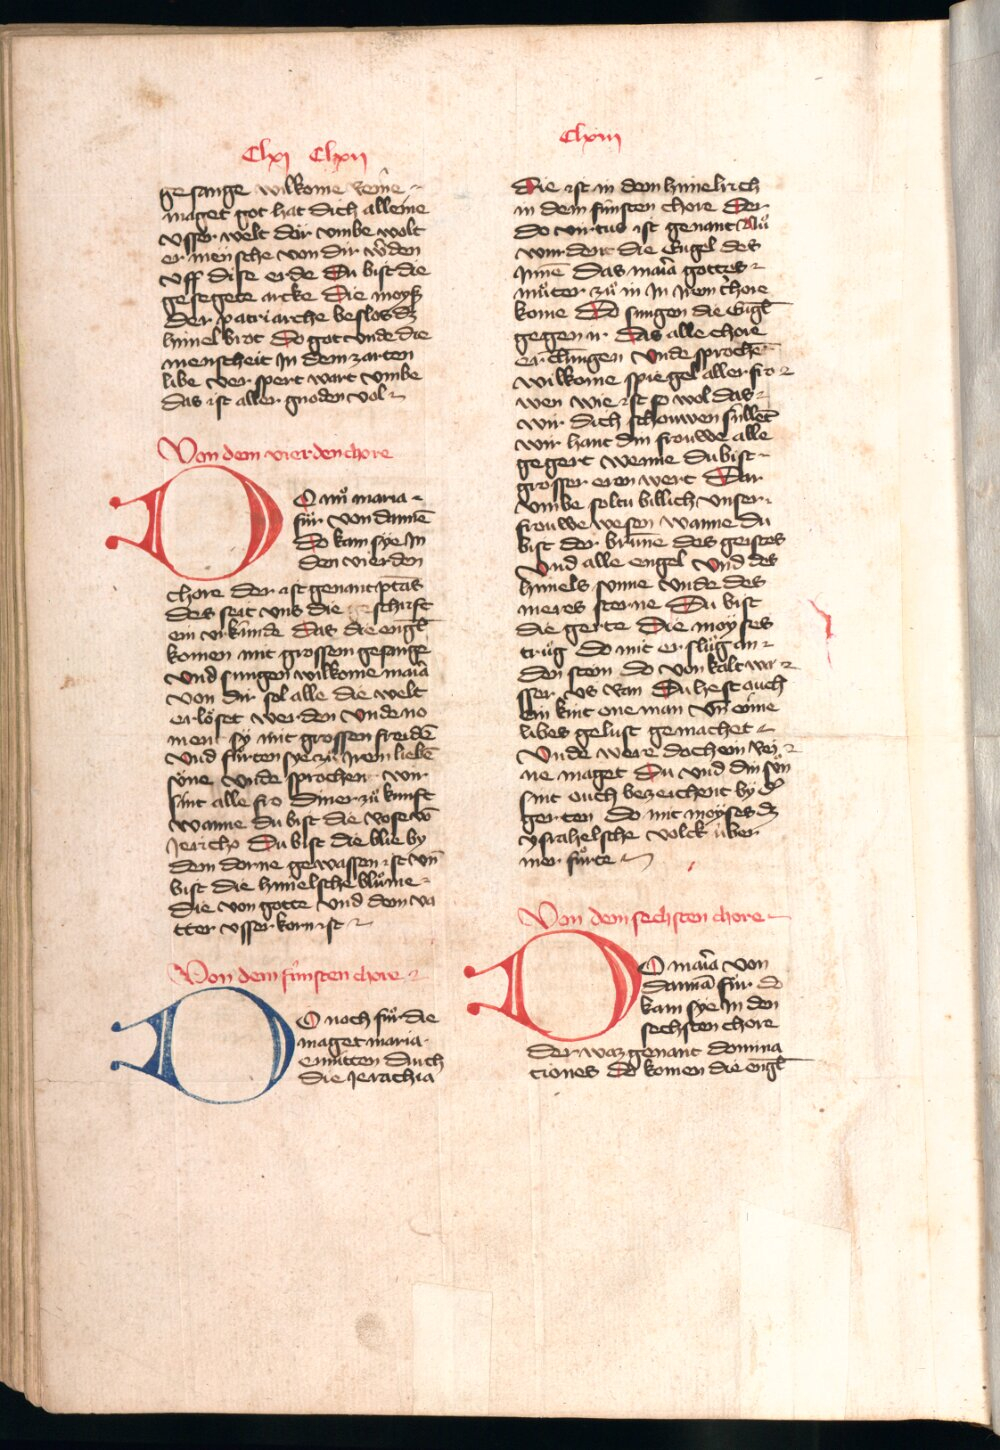 Clxj Clxij
gesange wilkome reine
maget got hat dich alleine
usser welt dar umbe wolt
er mensche von dir wͤden
uff dise erde Du bist die
gesegete arcke Die moyß
der patriarche beslos dz
himel brot Do got unde die
menscheit In dem zarten
libe ver spert wart umbe
das ist aller gnoden vol
Von dem vierden chore
DO nuͦ maria
fuͦr von dannē
Do kam sye In
den vierden
chore der ist genant ptās
des seit uns die schrift
ein urkunde Das die engl̄
komen mit grossem gesange
Und sungen wilkome maīa
von dir sol alle die welt
erloͤset werden Unde no
ment sy mit grossen freidē
Und fuͦrten sye zuͦ Irem liebē
sone Unde sprochen wir
sint alle fro diner zuͦ kunft
wanne du bist die rose vō
Jericho Du bist die blie by
dem dorne gewassen ist vn̄
bist die himelsche bluͦme
Die von gotte Und dem va
tter usser korn ist
Von dem fúnften chore
DO noch fuͦr die
maget maria
enmitten durch
die Jerachia
Clxiij
Die ist in dem himelrich
in dem fúnften chore Der
do virtus ist genant Nuͦ
wurdent die Engel des
Innē Das maīa gottes
muͦter zuͦ in In irem chore
kome Do sungen die Engl̄
gegen ir Das alle chore
erclungen Unde sprochē
wilkome spiegel aller fro
wen wie ist so wol das
wir dich schouwen súllēt
wir hant din frouwe alle
gegert wenne du bist
grosser eren wert Dar
umbe soltu billich unser
frouwe wesen wanne du
bist der brunne des geistes
Und alle engel Und des
himels sunne Unde des
meres sterne Du bist
die gerte Die moyses
truͦg do mit er sluͦg an
den stein do von kalt wa
sser us ran Du hest ouch
Ein kint one man Un̄ eine
libes gelust gemachet
Unde were doch ein rei
ne maget Du und din suͦn
sint ouch bezeichent by dͤ
gerten do mit moyses dz
ysrahelsche volck uber
mer fuͦrte
Von dem sechsten chore
DO maīa von
dannā fuͦr do
kam sye In den
sechsten chore
der waz genant domina
ciones do komen die engl̄